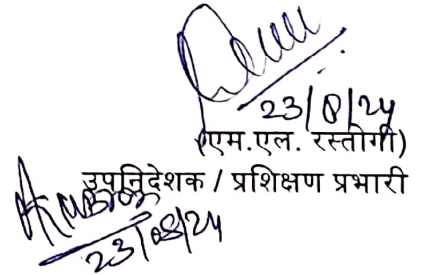 23/8/24
(एम.एल. रस्तोगी)
उपनिदेशक / प्रशिक्षण प्रभारी
23/08/24